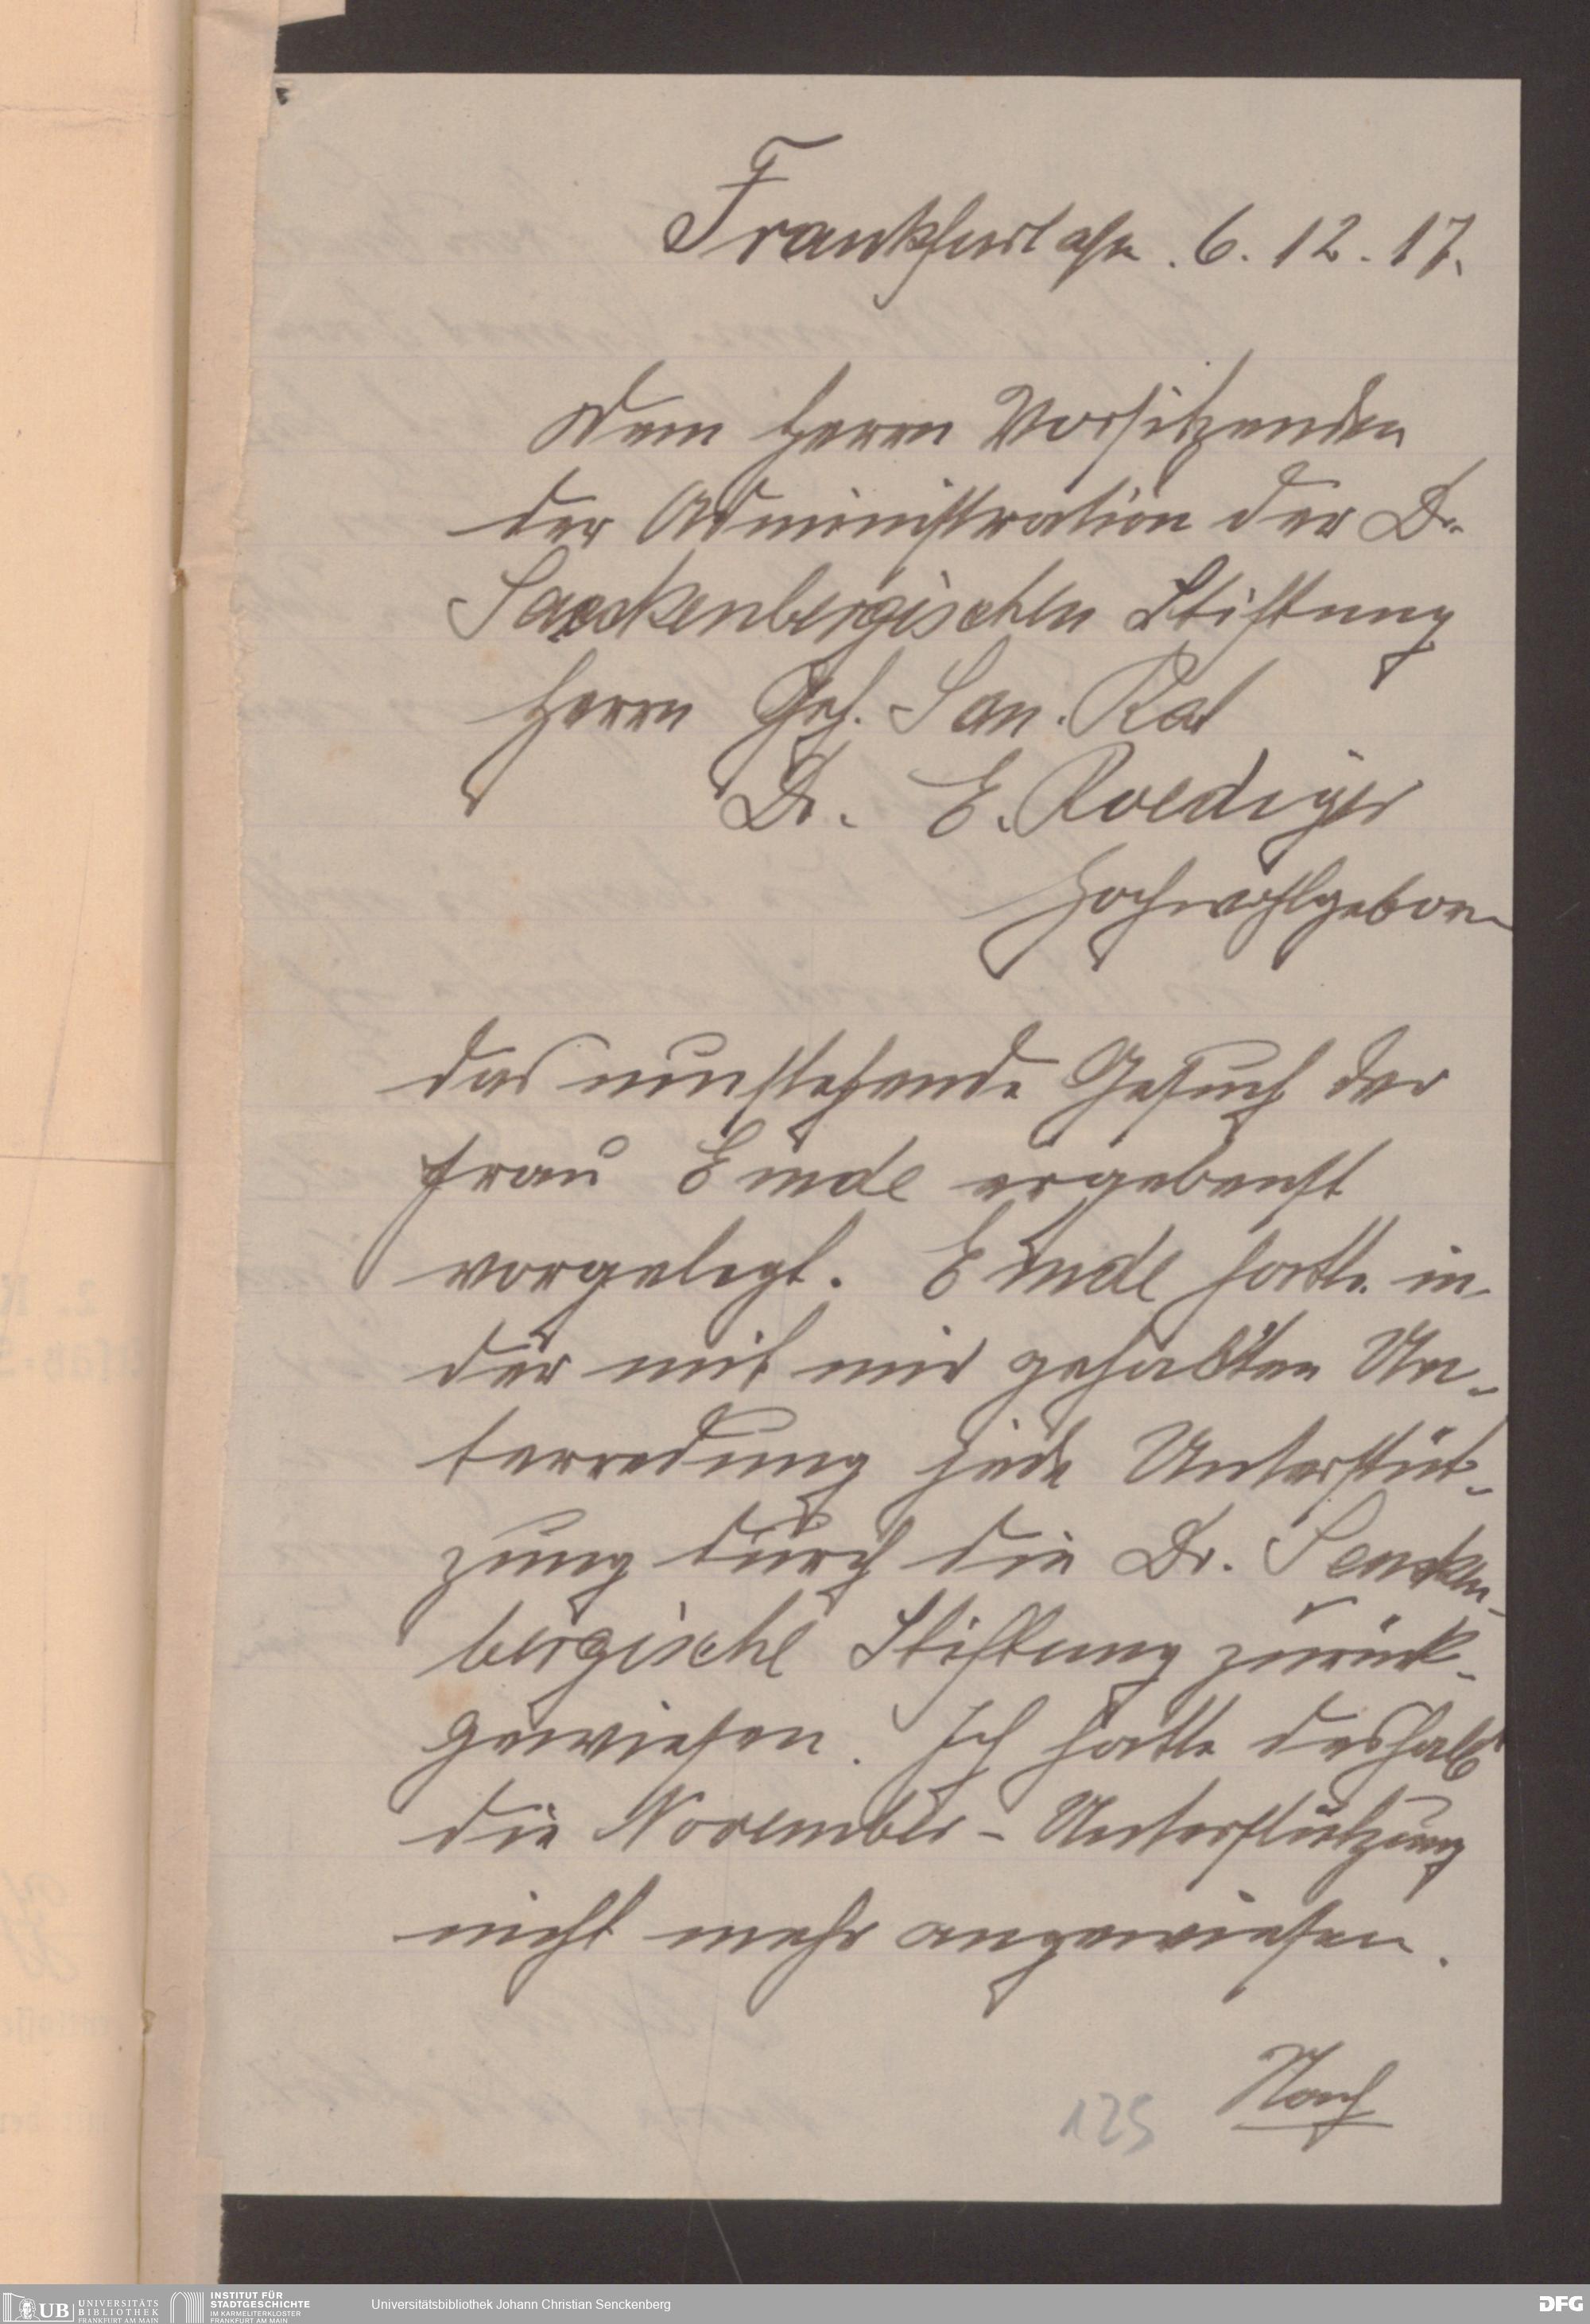 Frankfurt a/M. 6. 12. 17.
Dem Herrn Vorsitzenden
der Administration der Dr.
Senckenbergischen Stiftung
Herrn Geh. San. Rat
Dr. E. Roediger
Hochwohlgeboren
das umstehende Gesuch der
Frau Emde ergebenst
vorgelegt. Emde hatte in
der mit mir gehabten Un-
terredung jede Unterstüt-
zung durch die Dr. Sencken-
bergische Stiftung zurück-
gewiesen. Ich hatte deshalb
die November-Unterstützung
nicht mehr angewiesen.
Nach
125
UB UNIVERSITÄTS
BIBLIOTHEK
FRANKFURT AM MAIN
INSTITUT FÜR
STADTGESCHICHTE
IM KARMELITERKLOSTER
FRANKFURT AM MAIN
Universitätsbibliothek Johann Christian Senckenberg
DFG